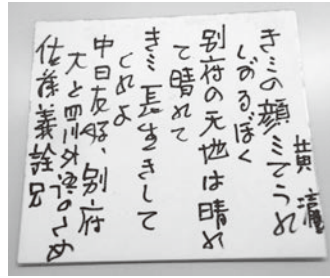 黄瀛
きミの顔ミてうれ
しがるぼく
別府の天地は晴れ
て晴れて
きミ長生きして
くれよ
中日友好、別府
大と四川外語のため
佐藤義詮兄